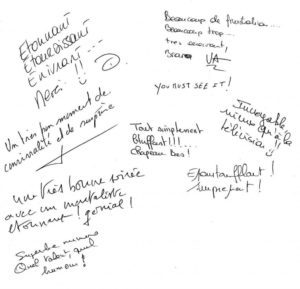 Etonnant
Etourdissant
Enivrant...
Merci !!
Beaucoup de frustration...
Beaucoup trop...
tres enivrant,
Bravo
YOU MUST SEE IT!
Incroyable
mieux qu'à la
télévision
Un très bon moment de
convivialité et de surprise
Tout simplement
bluffant!!!
chapeau bas!
Epoustouflant!
une très bonne soirée
avec un mentaliste
etonnant! génial!
Superbe numero
Quel talent, quel
humour!